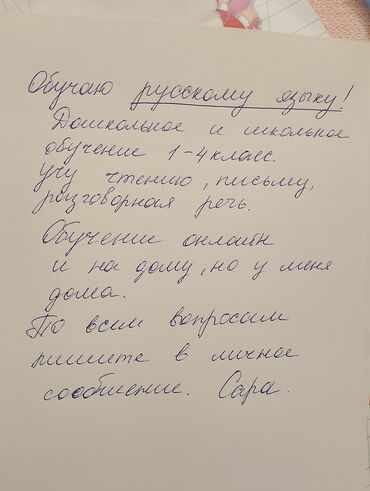 Обучаю русскому языку!
Дошкольное и школьное
обучение 1-4 класс.
Учу чтению, письму,
разговорная речь.
Обучение онлайн
и на дому, но у меня
дома.
По всем вопросам
пишите в личное
сообщение. Сара.